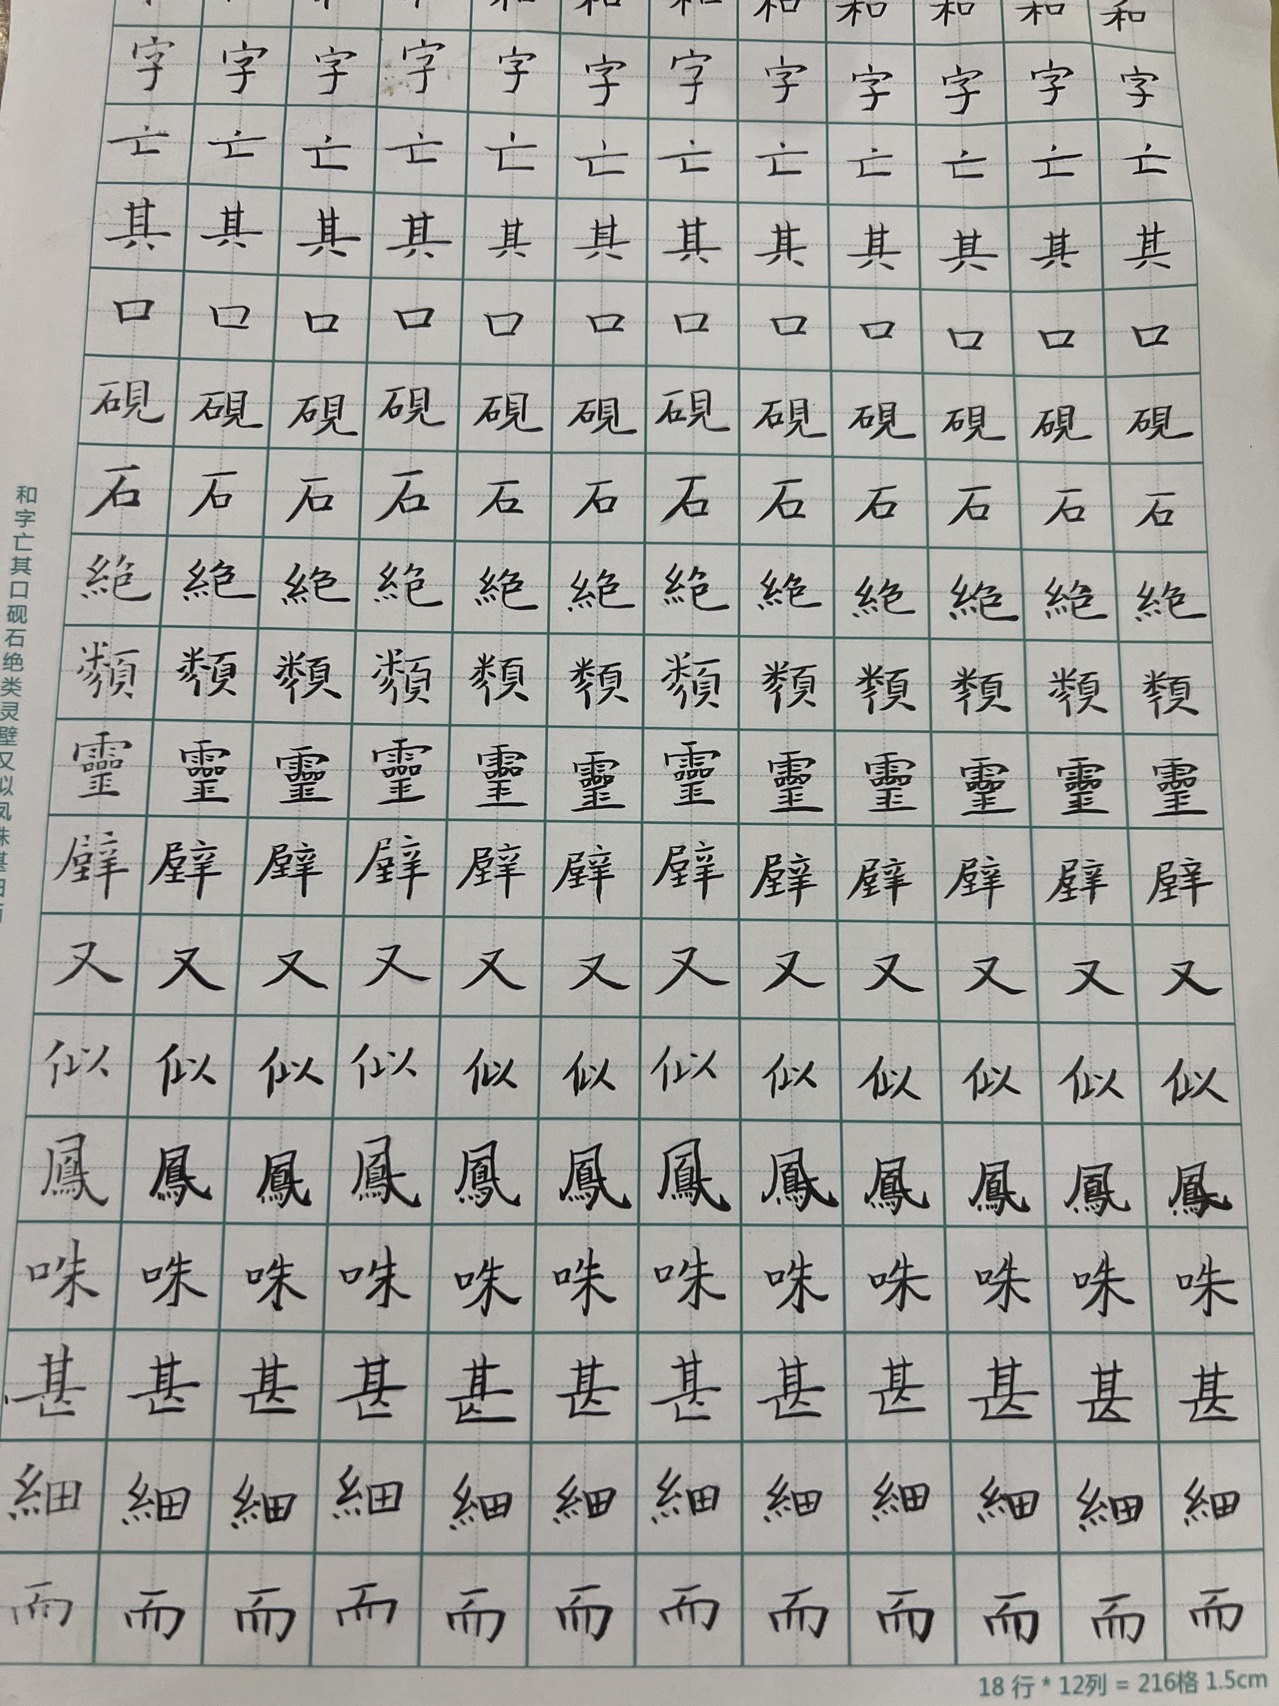 和 和 和 和 和 和 和 和 和 和 和 和
字 字 字 字 字 字 字 字 字 字 字 字
亡 亡 亡 亡 亡 亡 亡 亡 亡 亡 亡 亡
其 其 其 其 其 其 其 其 其 其 其 其
口 口 口 口 口 口 口 口 口 口 口 口
硯 硯 硯 硯 硯 硯 硯 硯 硯 硯 硯 硯
石 石 石 石 石 石 石 石 石 石 石 石
絶 絶 絶 絶 絶 絶 絶 絶 絶 絶 絶 絶
類 類 類 類 類 類 類 類 類 類 類 類
靈 靈 靈 靈 靈 靈 靈 靈 靈 靈 靈 靈
壁 壁 壁 壁 壁 壁 壁 壁 壁 壁 壁 壁
又 又 又 又 又 又 又 又 又 又 又 又
似 似 似 似 似 似 似 似 似 似 似 似
鳳 鳳 鳳 鳳 鳳 鳳 鳳 鳳 鳳 鳳 鳳 鳳
咮 咮 咮 咮 咮 咮 咮 咮 咮 咮 咮 咮
甚 甚 甚 甚 甚 甚 甚 甚 甚 甚 甚 甚
細 細 細 細 細 細 細 細 細 細 細 細
而 而 而 而 而 而 而 而 而 而 而 而
和字亡其口砚石绝类灵壁又似凤
18 行 * 12列 = 216格 1.5cm